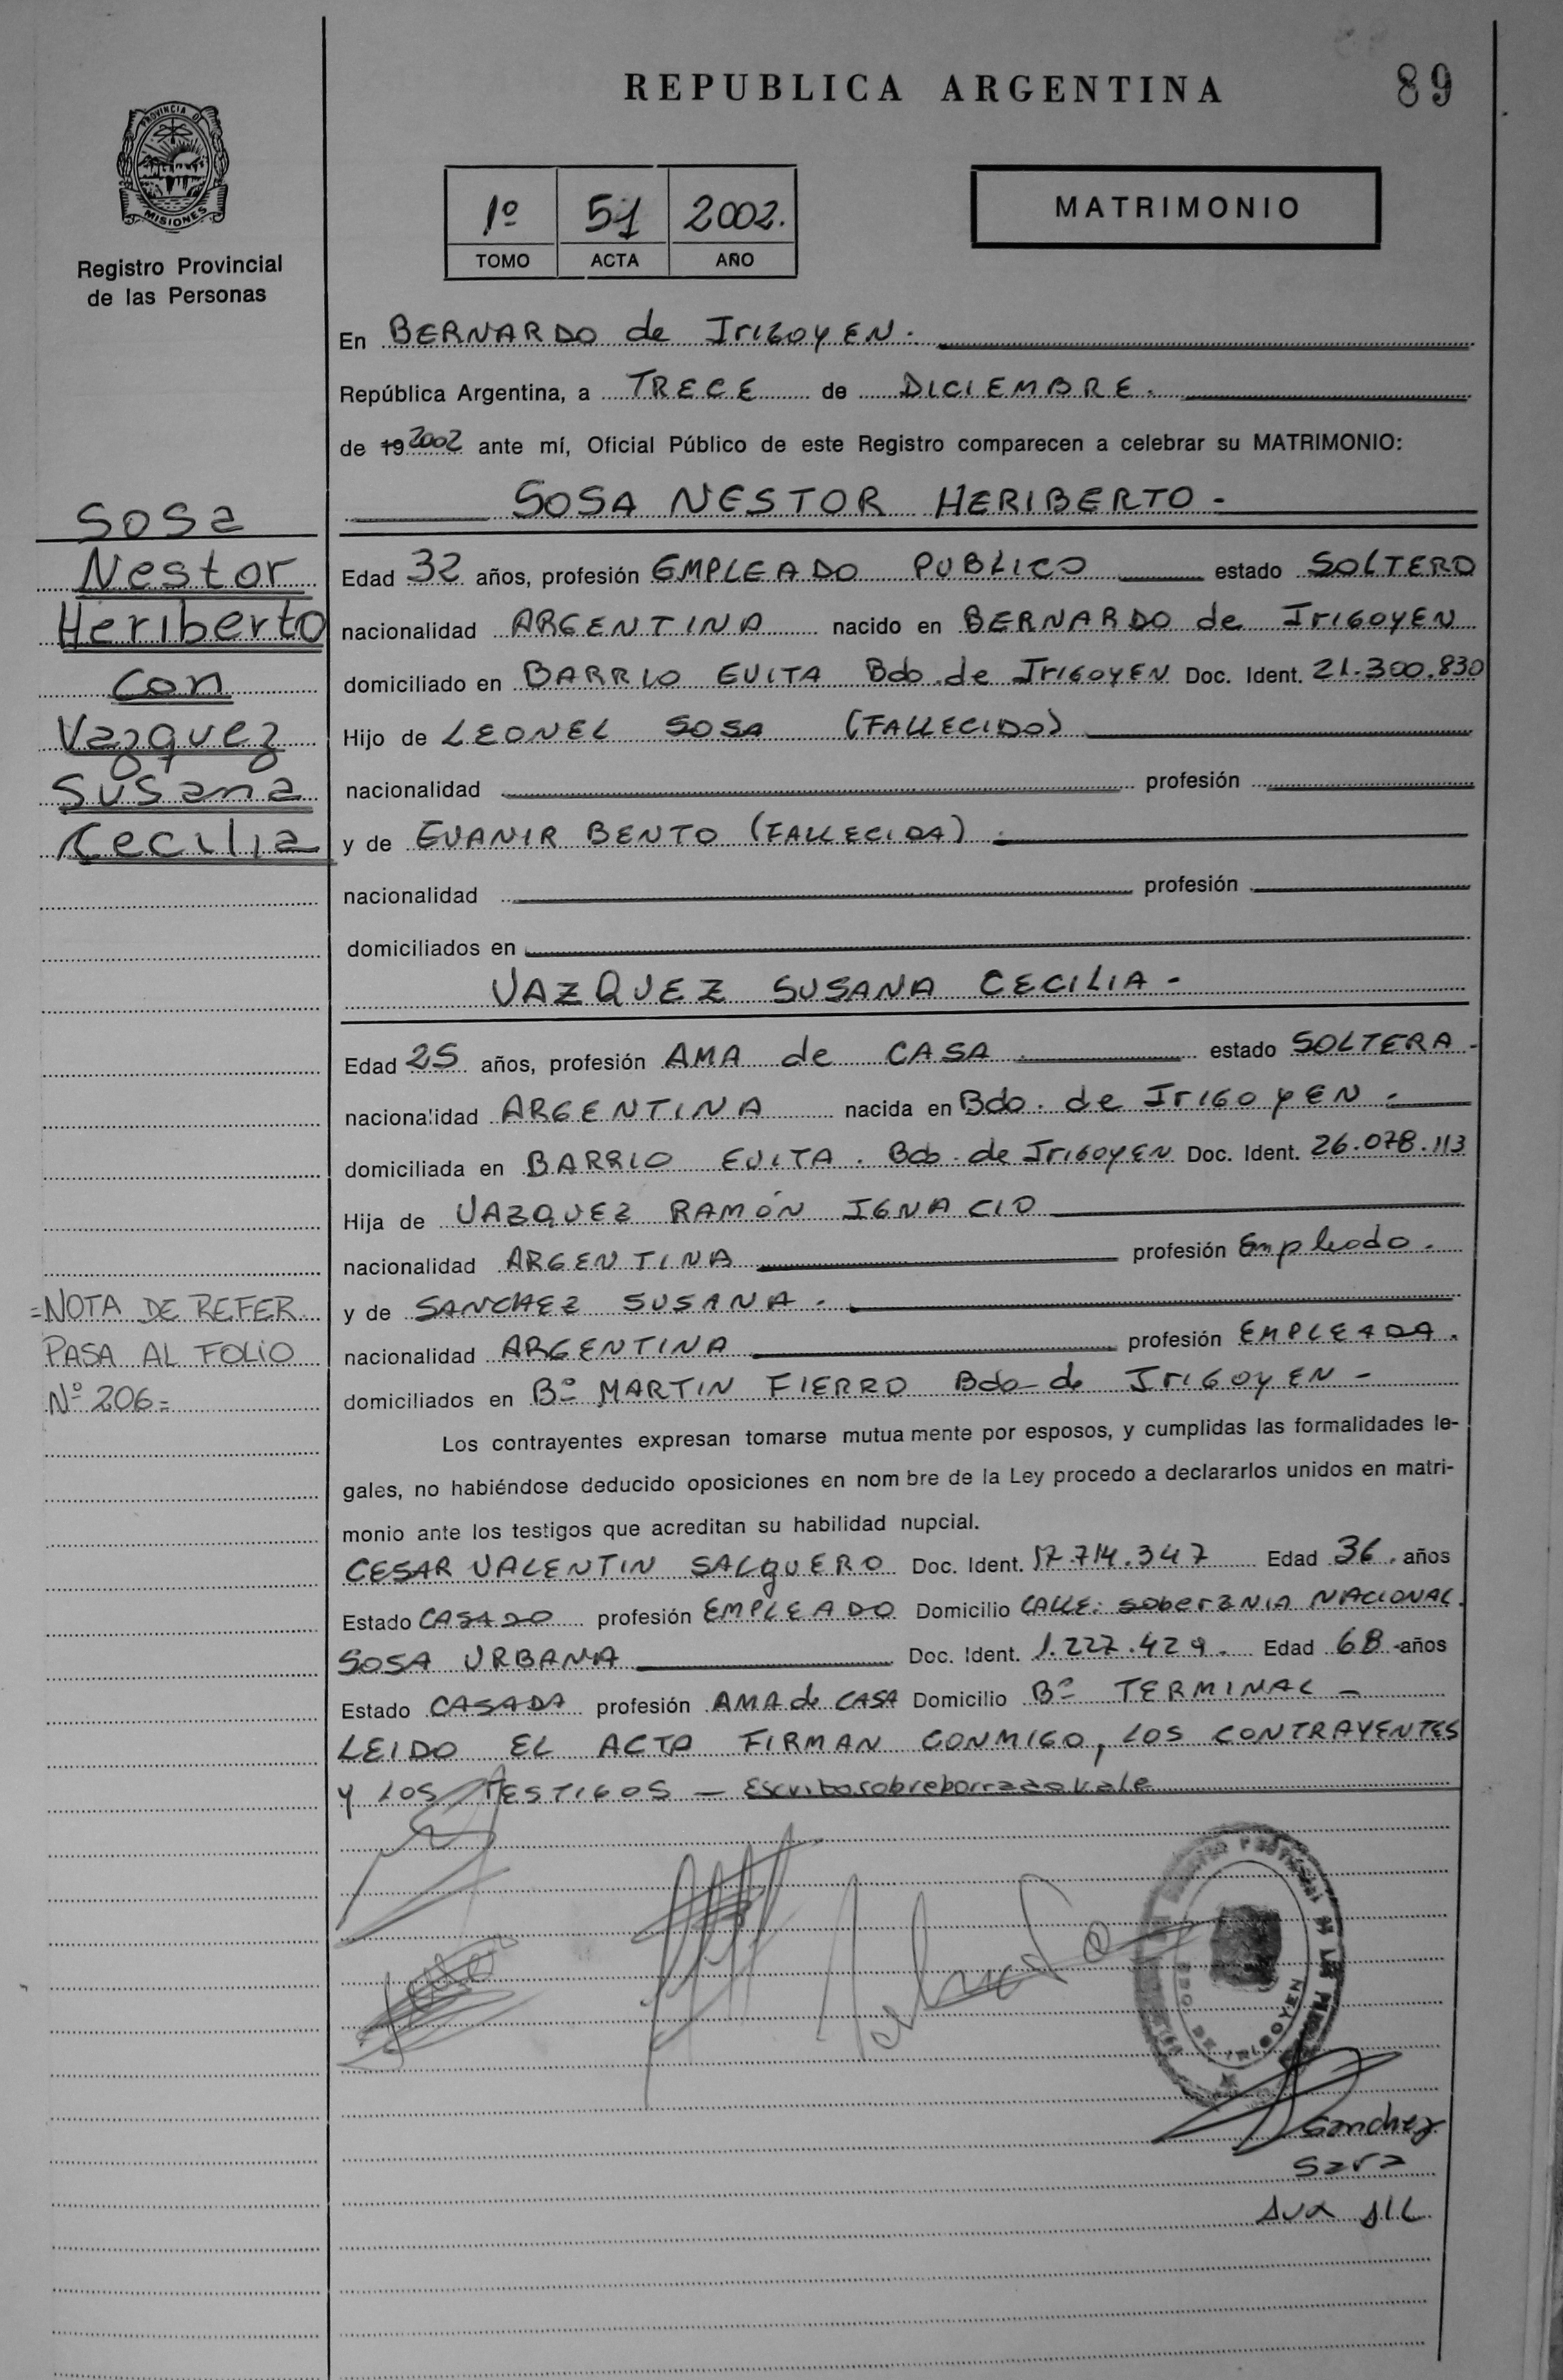 REPUBLICA ARGENTINA
89
PROVINCIA DE
MISIONES
Registro Provincial
de las Personas
1º 51 2002.
TOMO ACTA AÑO
MATRIMONIO
En BERNARDO de IrIGOYEN.
República Argentina, a TRECE de DICIEMBRE.
de 19 2002 ante mí, Oficial Público de este Registro comparecen a celebrar su MATRIMONIO:
SOSA NESTOR HERIBERTO -
Sosa
Nestor
Heriberto
con
Vazquez
Susana
Cecilia
Edad 32 años, profesión EMPLEADO PUBLICO estado SOLTERO
nacionalidad ARGENTINA nacido en BERNARDO de IrIGOYEN
domiciliado en BARRIO EVITA Bdo. de IrIGOYEN Doc. Ident. 21.300.830
Hijo de LEONEL SOSA (FALLECIDO)
nacionalidad profesión
y de EVANIR BENTO (FALLECIDA)
nacionalidad profesión
domiciliados en
VAZQUEZ SUSANA CECILIA -
Edad 25 años, profesión AMA de CASA estado SOLTERA -
nacionalidad ARGENTINA nacida en Bdo. de IrIGOYEN -
domiciliada en BARRIO EVITA . Bdo. de IrIGOYEN Doc. Ident. 26.078.113
Hija de VAZQUEZ RAMÓN IGNACIO
nacionalidad ARGENTINA profesión Empleado.
y de SANCHEZ SUSANA -
nacionalidad ARGENTINA profesión EMPLEADA.
domiciliados en Bº MARTIN FIERRO Bdo de IrIGOYEN -
=NOTA DE REFER.
PASA AL FOLIO
Nº 206=
Los contrayentes expresan tomarse mutua mente por esposos, y cumplidas las formalidades le-
gales, no habiéndose deducido oposiciones en nom bre de la Ley procedo a declararlos unidos en matri-
monio ante los testigos que acreditan su habilidad nupcial.
CESAR VALENTIN SALQUERO Doc. Ident. 17.714.347 Edad 36. años
Estado CASADO profesión EMPLEADO Domicilio CALLE: soberaNIA NACIONAL.
SOSA URBANA Doc. Ident. 1.227.429. Edad 68 años
Estado CASADA profesión AMA de CASA Domicilio Bº TERMINAL -
LEIDO EL ACTA FIRMAN CONMIGO, LOS CONTRAYENTES
y LOS TESTIGOS - Escrito sobre borrado vale
BDO DE IRIGOYEN
Sanchez
Sara